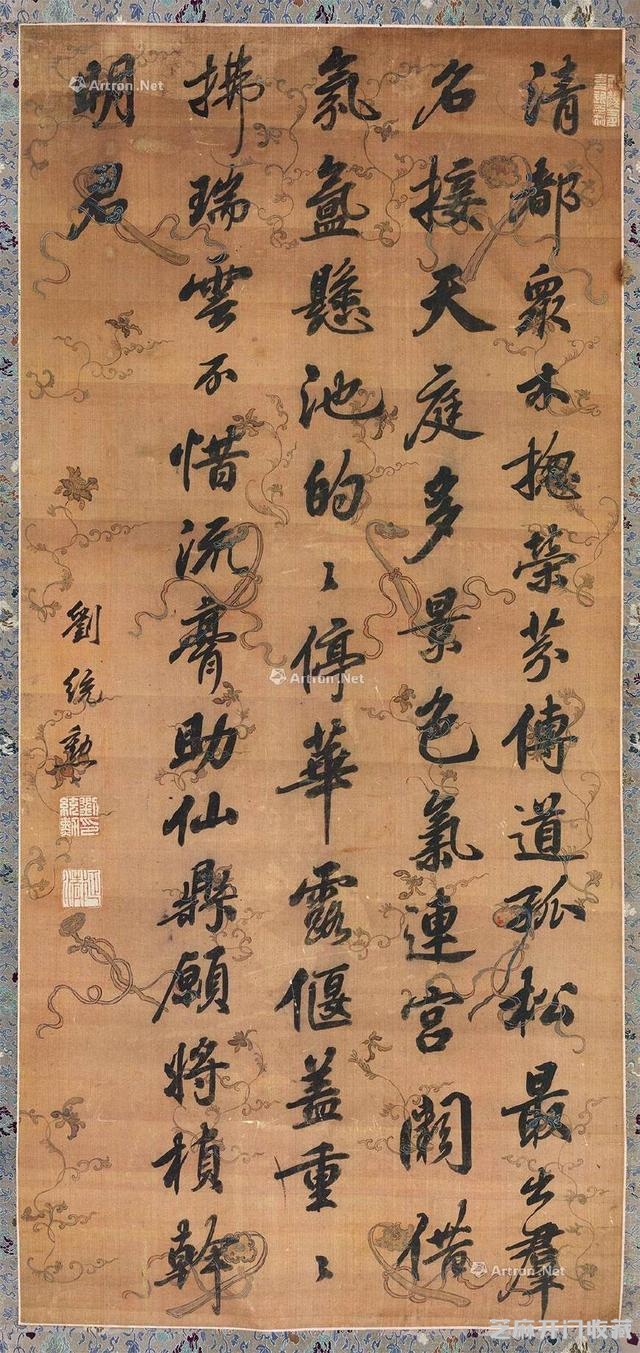 清都眾木揔榮芬傳道孤松最出羣
名接天庭多景色氣連宮闕借
氛氳懸池的〻停華露偃盖重〻
拂瑞雲不惜流膏助仙鼎願將楨幹
明君
劉統勳
劉印統勳
延清
Artron.Net
Artron.Net
Artron.Net
Artron.Net
芝麻开门收藏